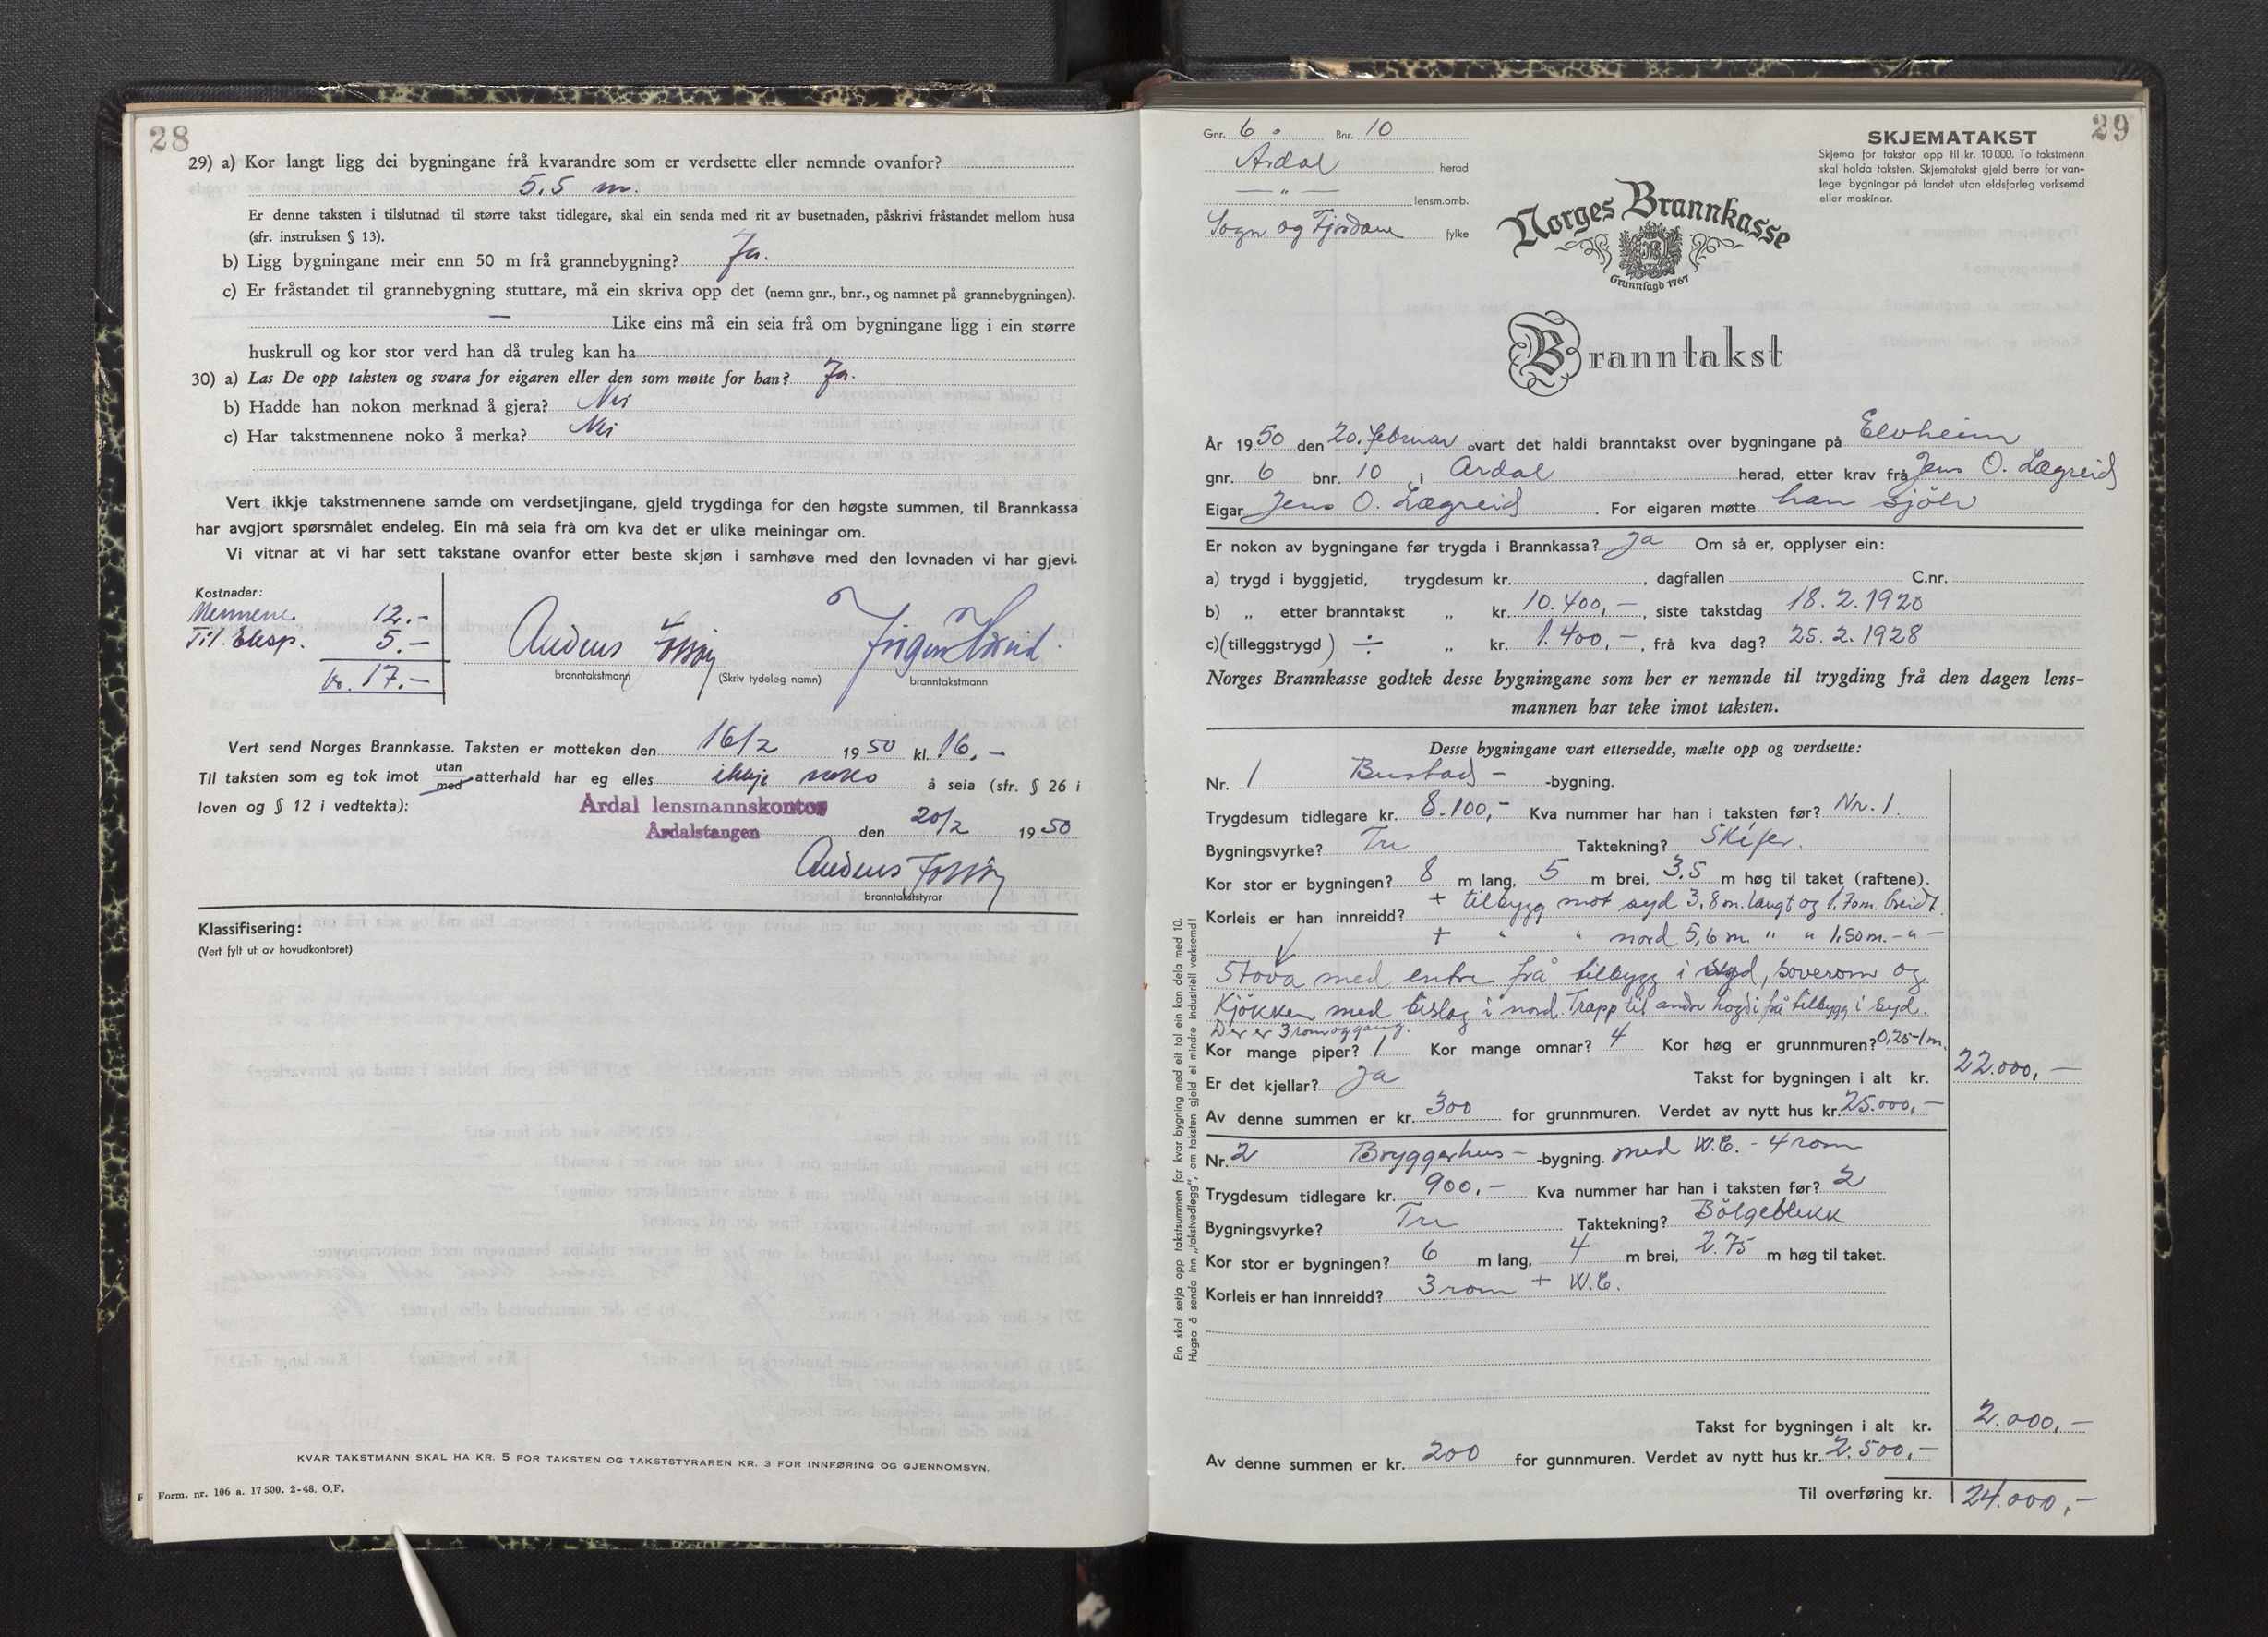 28
29) a) Kor langt ligg dei bygningane frå kvarandre som er verdsette eller nemnde ovanfor?
5,5 m.
Er denne taksten i tilslutnad til større takst tidlegare, skal ein senda med rit av busetnaden, påskrivi fråstandet mellom husa
(sfr. instruksen § 13).
b) Ligg bygningane meir enn 50 m frå grannebygning? Ja.
c) Er fråstandet til grannebygning stuttare, må ein skriva opp det (nemn gnr., bnr., og namnet på grannebygningen).
— Like eins må ein seia frå om bygningane ligg i ein større
huskrull og kor stor verd han då truleg kan ha
30) a) Las De opp taksten og svara for eigaren eller den som møtte for han? Ja.
b) Hadde han nokon merknad å gjera? Nei
c) Har takstmennene noko å merka? Nei
Vert ikkje takstmennene samde om verdsetjingane, gjeld trygdinga for den høgste summen, til Brannkassa
har avgjort spørsmålet endeleg. Ein må seia frå om kva det er ulike meiningar om.
Vi vitnar at vi har sett takstane ovanfor etter beste skjøn i samhøve med den lovnaden vi har gjevi.
Kostnader:
Mennene. 12.-
Til Eksp. 5.-
kr. 17.-
Anders
branntakstmann (Skriv tydeleg namn) branntakstmann
Vert send Norges Brannkasse. Taksten er motteken den 16/2 1950 kl. 16,-
Til taksten som eg tok imot utan/med atterhald har eg elles ikkje noko å seia (sfr. § 26 i
loven og § 12 i vedtekta):
Årdal lensmannskontor
Årdalstangen den 20/2 1950
Anders
branntakststyrar
Klassifisering:
(Vert fylt ut av hovudkontoret)
KVAR TAKSTMANN SKAL HA KR. 5 FOR TAKSTEN OG TAKSTSTYRAREN KR. 3 FOR INNFØRING OG GJENNOMSYN.
F Form. nr. 106 a. 17 500. 2-48. O.F.
29
Gnr. 6. Bnr. 10
Årdal herad
— " — lensm.omb.
Sogn og Fjordane fylke
SKJEMATAKST
Skjema for takstar opp til kr. 10 000. To takstmenn
skal halda taksten. Skjematakst gjeld berre for van-
lege bygningar på landet utan eldsfarleg verksemd
eller maskinar.
Norges Brannkasse
Grunnlagd 1767
Branntakst
År 1950 den 20. februar vart det haldi branntakst over bygningane på Elvheim
gnr. 6 bnr. 10 i Årdal herad, etter krav frå Jens O. Lægreid
Eigar Jens O. Lægreid. For eigaren møtte han sjölv
Er nokon av bygningane før trygda i Brannkassa? Ja Om så er, opplyser ein:
a) trygd i byggjetid, trygdesum kr. , dagfallen C.nr.
b) „ etter branntakst „ kr. 10.400,-, siste takstdag 18.2.1920
c) (tilleggstrygd) ÷ „ kr. 1.400,-, frå kva dag? 25.2.1928
Norges Brannkasse godtek desse bygningane som her er nemnde til trygding frå den dagen lens-
mannen har teke imot taksten.
Desse bygningane vart ettersedde, mælte opp og verdsette:
Nr. 1 Bustad- -bygning.
Trygdesum tidlegare kr. 8.100,- Kva nummer har han i taksten før? Nr. 1.
Bygningsvyrke? Tre Taktekning? Skifer.
Kor stor er bygningen? 8 m lang, 5 m brei, 3,5 m høg til taket (raftene).
Korleis er han innreidd? + tilbygg mot syd 3,8 m. langt og 1,70 m. breidt.
+ " " nord 5,6 m. " " 1,50 m. - " -
Stova med entre frå tilbygg i syd, soverom og
Kjökken med bislag i nord. Trapp til andre högdi frå tilbygg i syd.
Der er 3 rom og gang.
Kor mange piper? 1 Kor mange omnar? 4 Kor høg er grunnmuren? 0,25-1 m.
Er det kjellar? Ja Takst for bygningen i alt kr. 22.000,-
Av denne summen er kr. 300 for grunnmuren. Verdet av nytt hus kr. 25.000,-
Nr. 2 Bryggerhus- -bygning. med W.C. - 4 rom
Trygdesum tidlegare kr. 900,- Kva nummer har han i taksten før? 2
Bygningsvyrke? Tre Taktekning? Bölgeblikk
Kor stor er bygningen? 6 m lang, 4 m brei, 2.75 m høg til taket.
Korleis er han innreidd? 3 rom + W.C.
Takst for bygningen i alt kr. 2.000,-
Av denne summen er kr. 200 for gunnmuren. Verdet av nytt hus kr. 2.500,-
Til overføring kr. 24.000,-
Ein skal setja opp takstsummen for kvar bygning med eit tal ein kan dela med 10.
Hugsa å senda inn „takstvedlegg", om taksten gjeld ei mindre industriell verksemd!